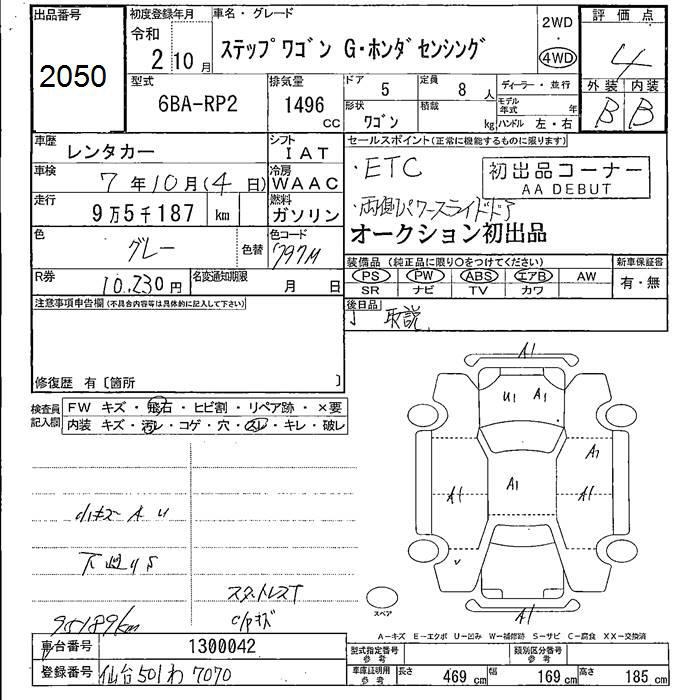 出品番号 初度登録年月 車名・グレード 2WD 評価点
2050 令和 2 10月 ステップワゴン G・ホンダセンシング 4WD 4
型式 6BA-RP2 排気量 1496 cc ドア 5 定員 8 人 ディーラー・並行 外装 内装
形状 ワゴン 積載 kg モデル年式 年 ハンドル 左・右 B B
車歴 レンタカー シフト IAT セールスポイント(正常に機能するものに限ります)
車検 7年10月(4日) 冷房 WAAC ・ETC 初出品コーナー
AA DEBUT
走行 9万5千187 km 燃料 ガソリン ・両側パワースライドドア
オークション初出品
色 グレー 色替 色コード 797M
装備品(純正品に限り○をつけてください) 新車保証書
R券 10,230円 名変通知期限 月 日 PS PW ABS エアB AW 有・無
SR ナビ TV カワ
注意事項申告欄(不具合内容等は具体的に記入して下さい) 後日品
取説
修復歴 有〔箇所 〕
検査員記入欄 FW キズ・飛石・ヒビ割・リペア跡・×要
内装 キズ・汚レ・コゲ・穴・スレ・キレ・破レ
A1
U1 A1
A1
A1 A1 A1
小キズ A U
下廻りS
スタットレスT
C/Pキズ
95189km
スペア
A1
A-キズ E-エクボ U-凹み W-補修跡 S-サビ C-腐食 XX-交換済
車台番号 1300042 型式指定番号 参考 類別区分番号 参考
登録番号 仙台501わ7070 車庫証明用 参考 長さ 469 cm 幅 169 cm 高さ 185 cm